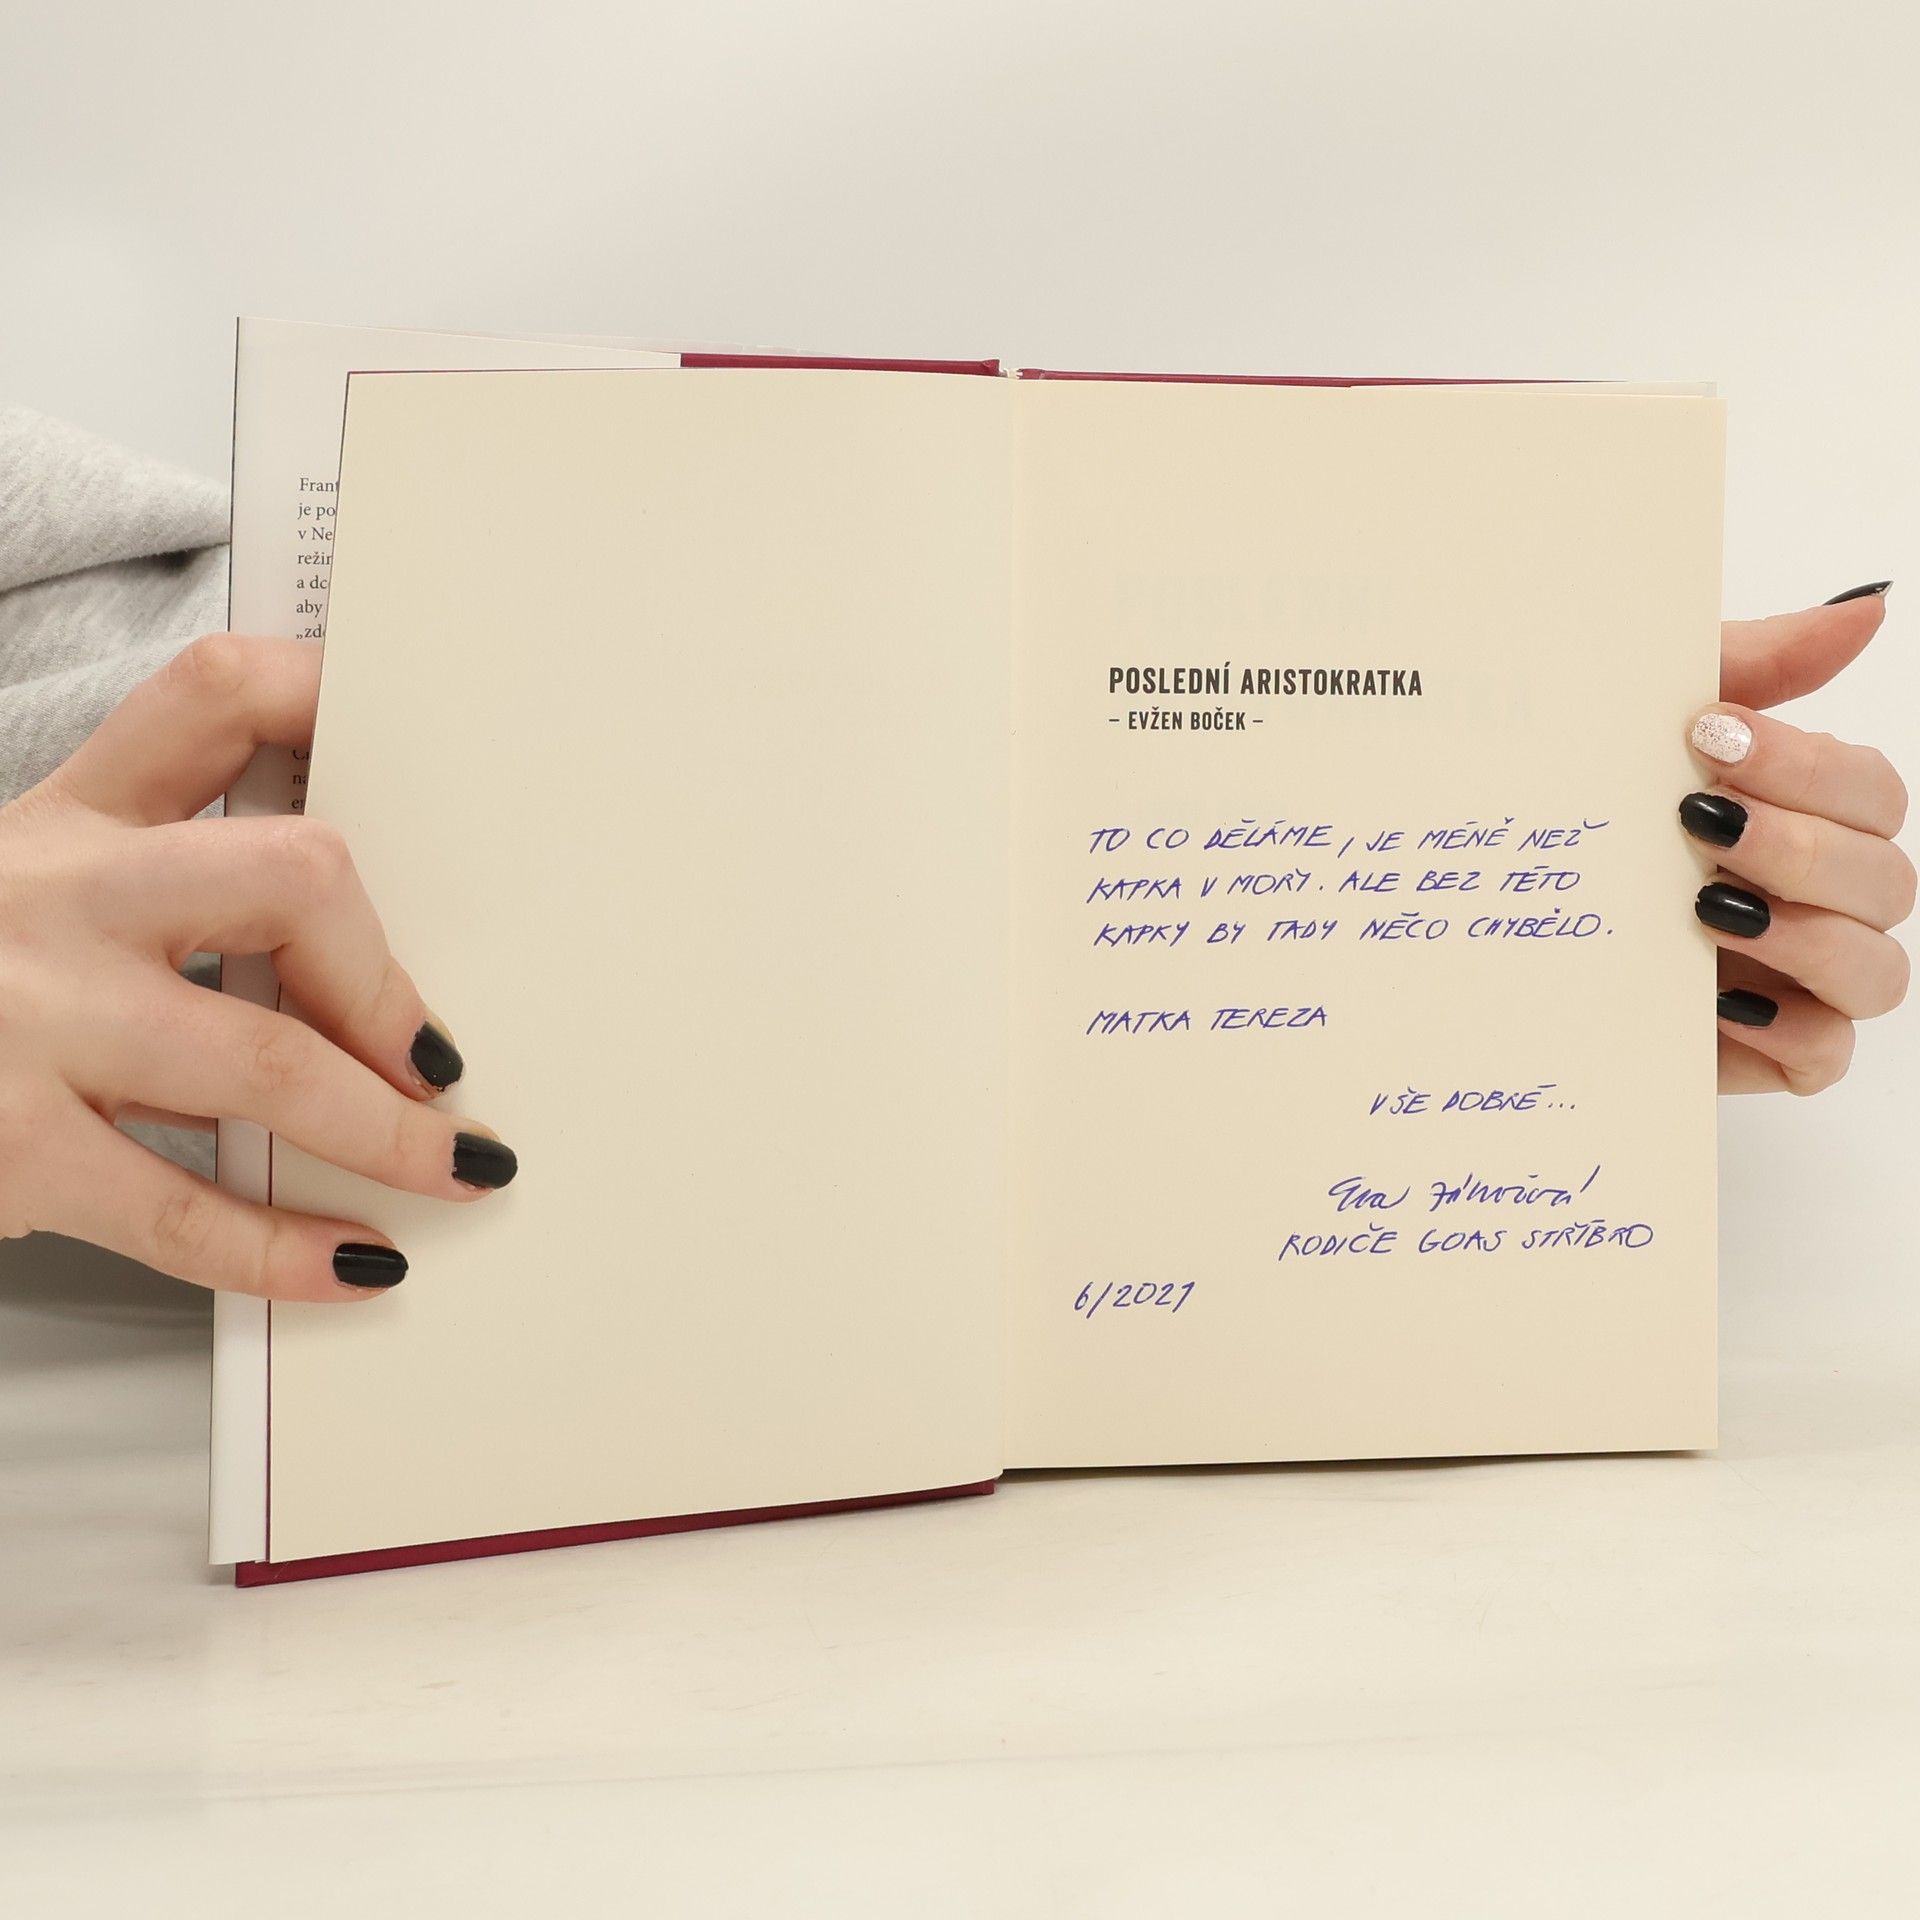 Frant
je po
v Ne
režir
a dc
aby
„zd
POSLEDNÍ ARISTOKRATKA
– EVŽEN BOČEK –
TO CO DĚLÁME, JE MÉNĚ NEŽ
KAPKA V MOŘY. ALE BEZ TÉTO
KAPKY BY TADY NĚCO CHYBĚLO.
MATKA TEREZA
VŠE DOBRÉ...
Eva
RODIČE GOAS STŘÍBRO
6/2021